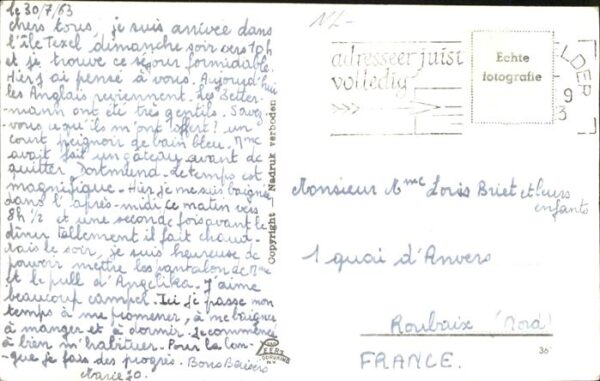 le 30/7/63
chers tous, je suis arrivée dans
l'île Texel dimanche soir vers 10h
et je trouve ce séjour formidable.
Hier j'ai pensé à vous. Aujourd'hui
les Anglais reviennent. Les Better-
mann ont été très gentils. Savez-
vous ce qu'ils m'ont offert! un
court peignoir de bain bleu. Mme
avait fait un gâteau avant de
quitter Dortmund. Le temps est
magnifique. Hier je me suis baignée
dans l'après-midi ce matin vers
8h 1/2 et une seconde fois avant le
dîner tellement il fait chaud.
Mais le soir, je suis heureuse de
pouvoir mettre les pantalon de Mme
et le pull d'Angelika. J'aime
beaucoup camper. Ici je passe mon
temps à me promener, à me baigner
à manger et à dormir. Je commence
à bien m'habituer. Pour la lan-
-gue je fais des progrès. Bons Baisers
Marie Jo.
Copyright Nadruk verboden
1/-
adresseer juist
volledig
Echte
fotografie
LDER
9
3
Monsieur Mme Loris Briet et leurs
enfants
1 quai d'Anvers
Roubaix (Nord)
FRANCE.
36